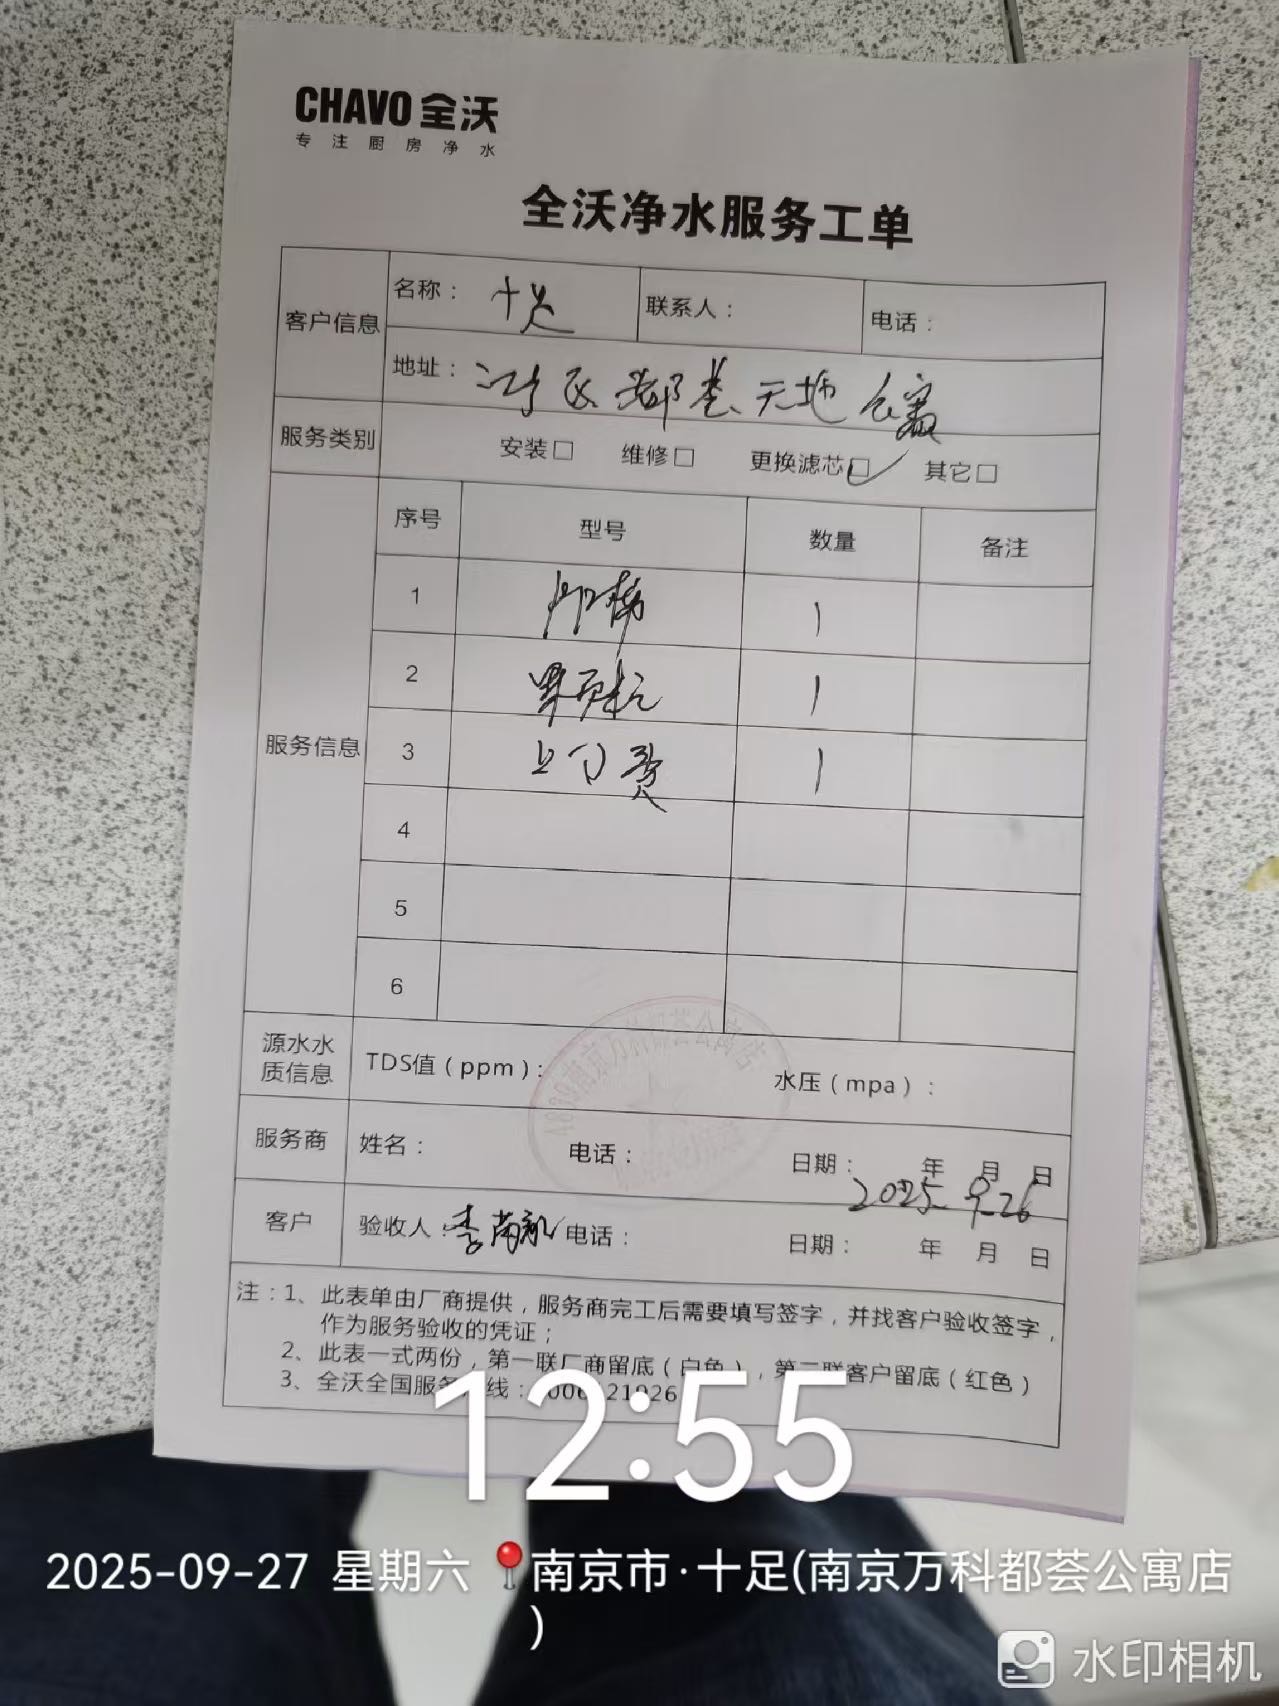 CHAVO 全沃
专注厨房净水
全沃净水服务工单
客户信息 名称：十足 联系人： 电话：
地址：江宁区都荟天地
服务类别 安装□ 维修□ 更换滤芯□✓ 其它□
服务信息 序号 型号 数量 备注
1 1
2 1
3 上门费 1
4
5
6
源水水质信息 TDS值（ppm）： 水压（mpa）：
A809南京万科都荟公寓店
服务商 姓名： 电话： 日期： 年 月 日
2025-9-26
客户 验收人：李 电话： 日期： 年 月 日
注：1、此表单由厂商提供，服务商完工后需要填写签字，并找客户验收签字，
作为服务验收的凭证；
2、此表一式两份，第一联厂商留底（白色），第二联客户留底（红色）
3、全沃全国服务 线：
12:55
2025-09-27 星期六 南京市·十足(南京万科都荟公寓店
)
水印相机